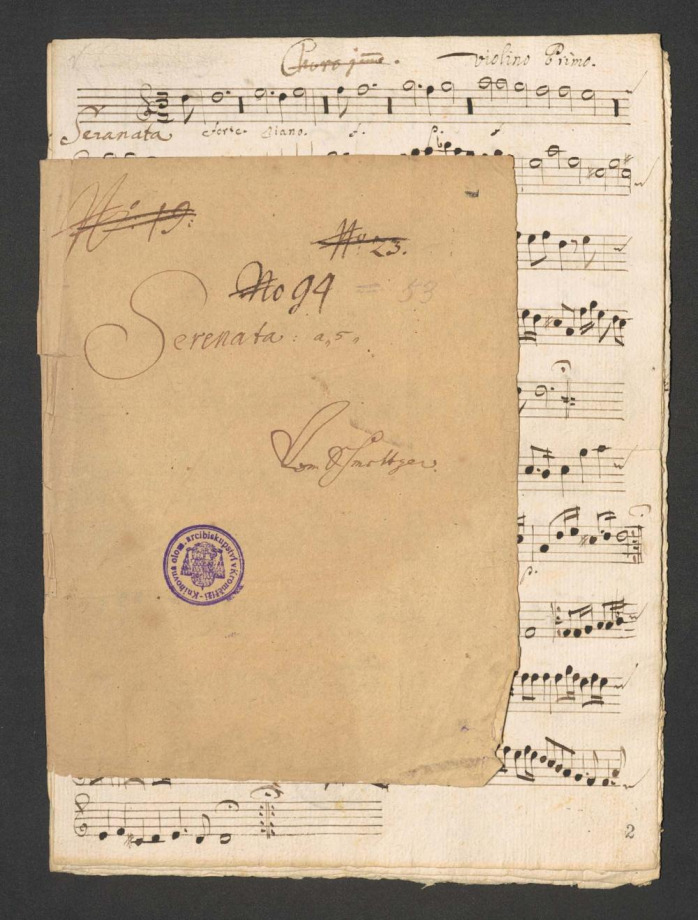 Choro jmo. violino Primo.
Seranata forte. Piano. f. p. f
No. 19:
No. 23.
No 94 = 53
Serenata: a„5„
p.
Knihovna olom. arcibiskupství v Kroměříži
2